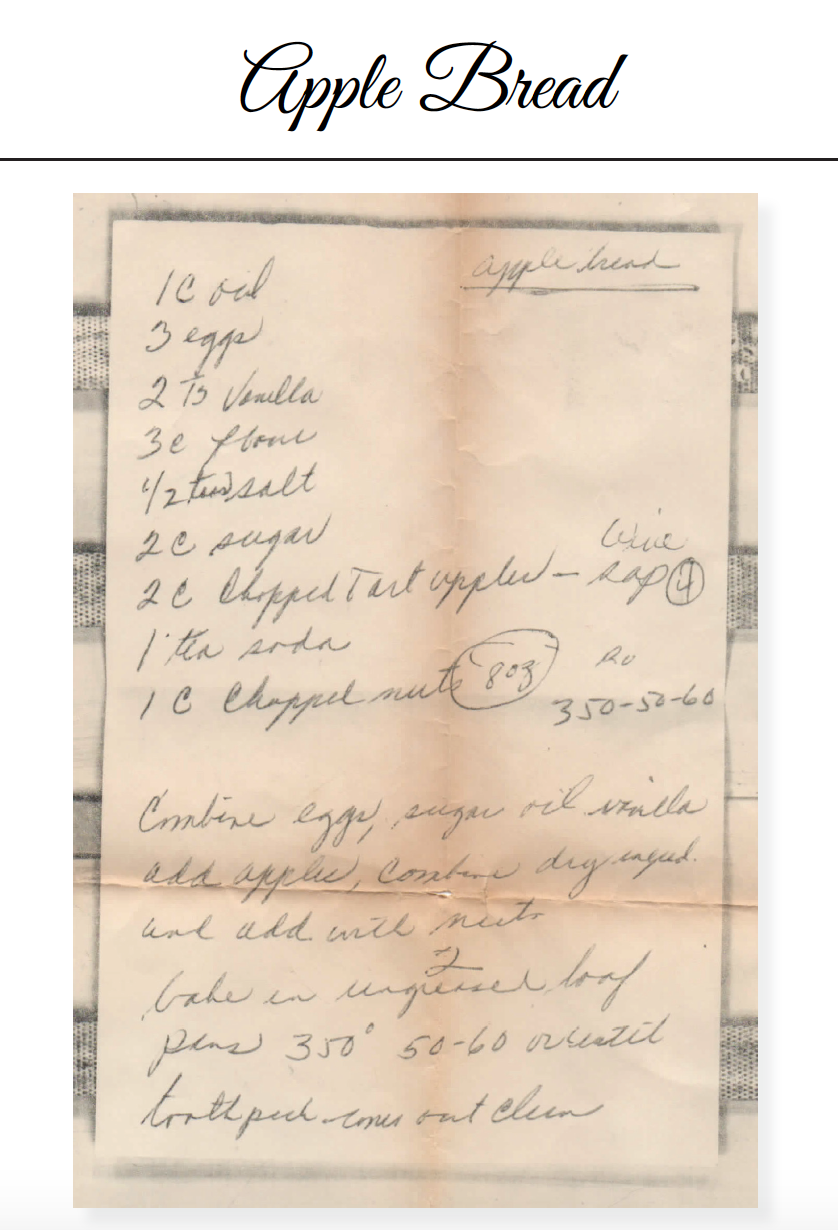 Apple Bread
apple bread
1 C oil
3 eggs
2 Ts Vanilla
3 c flour
1/2 tea salt
2 c sugar
2 c Chopped Tart apples – Wine sap 4
1 tea soda
1 C Chopped nuts 8oz
350-50-60
Combine eggs, sugar oil vanilla
add apples, combine dry ingred.
and add with nuts
2
bake in ungreased loaf
pans 350° 50-60 or until
toothpick comes out clean